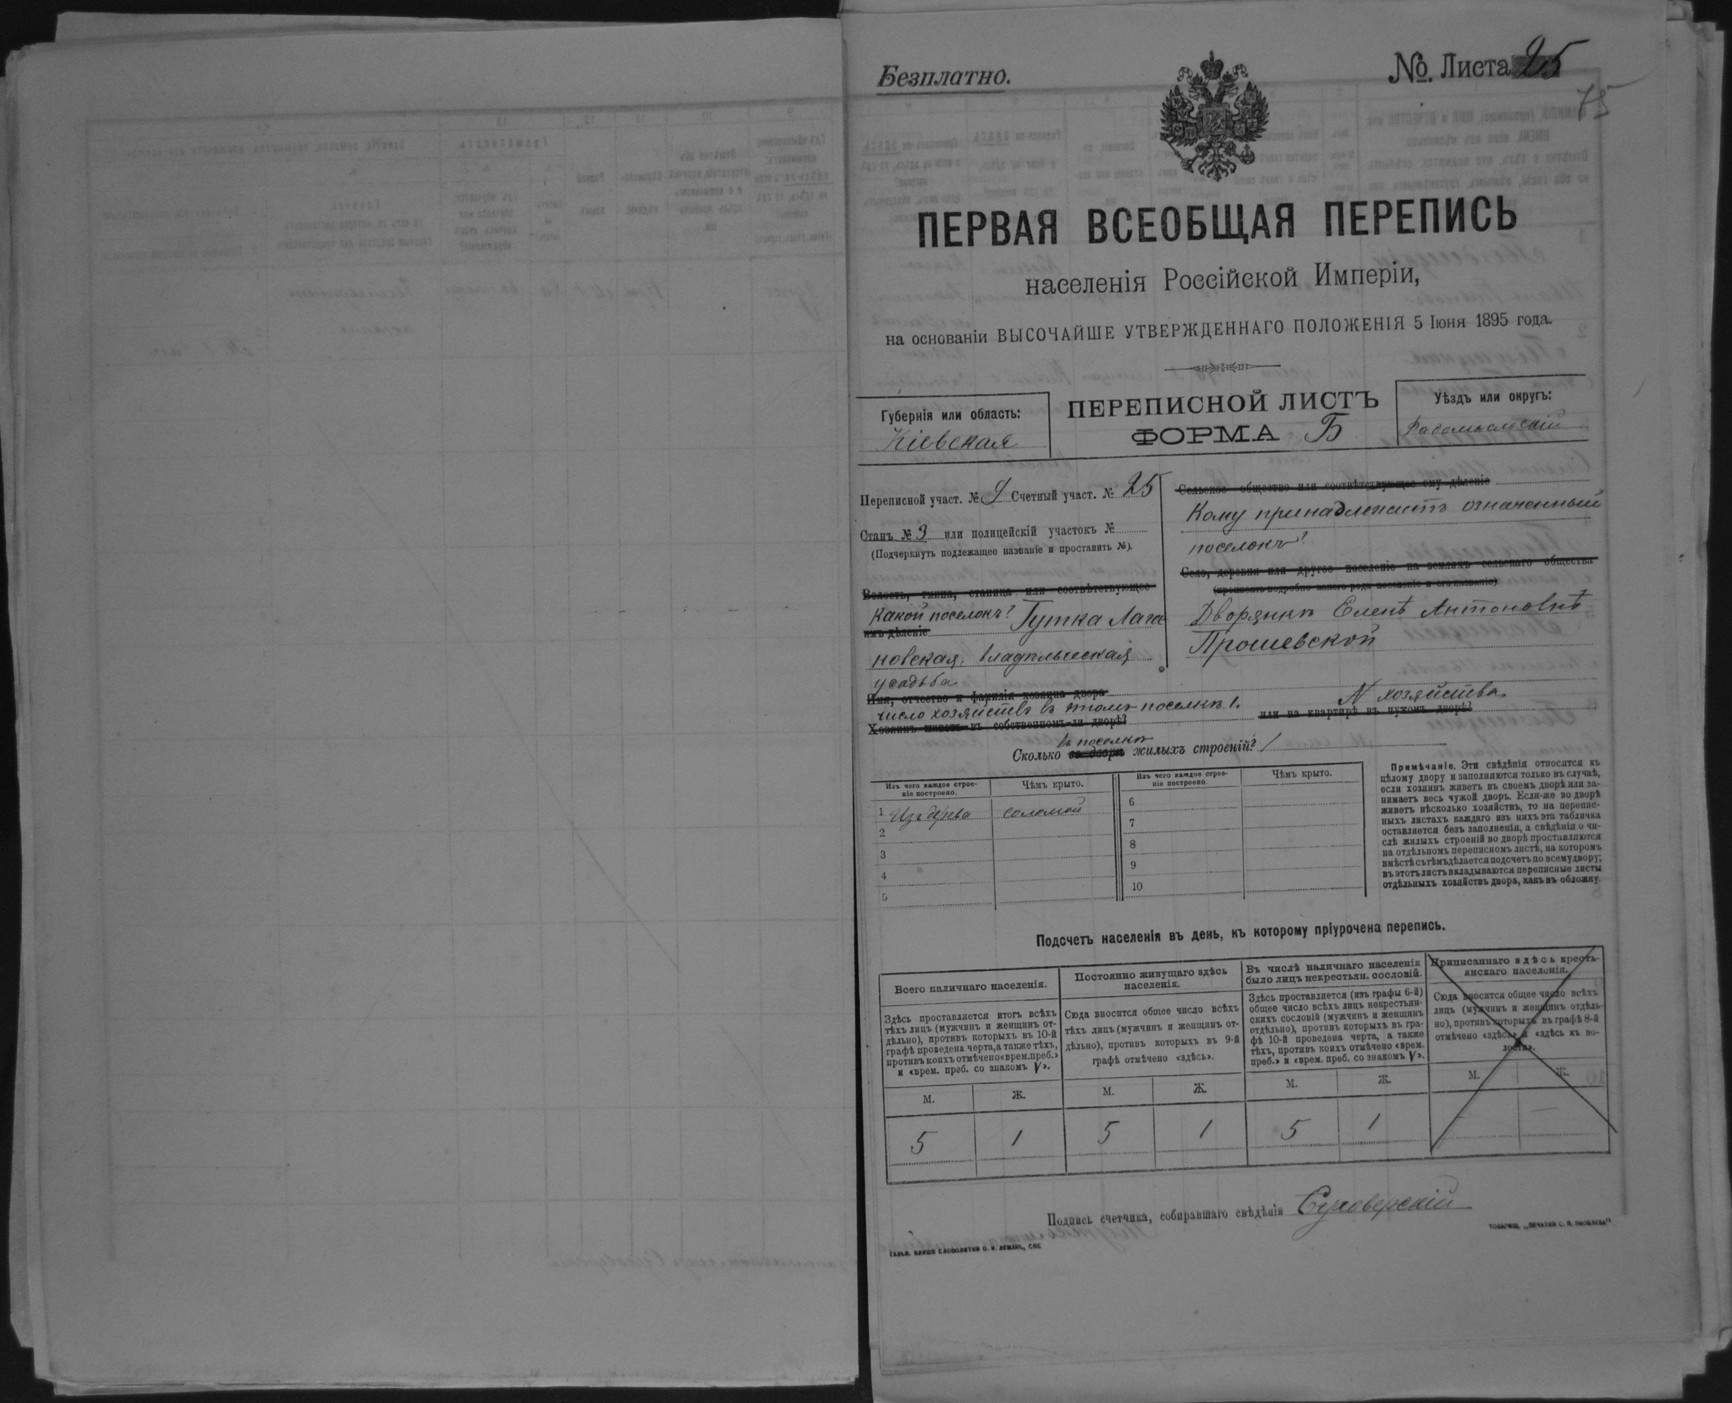 Безплатно.
№. Листа 25
75
ПЕРВАЯ ВСЕОБЩАЯ ПЕРЕПИСЬ
населенія Россійской Имперіи,
на основаніи ВЫСОЧАЙШЕ УТВЕРЖДЕННАГО ПОЛОЖЕНІЯ 5 Іюня 1895 года.
Губернія или область:
Кіевская
ПЕРЕПИСНОЙ ЛИСТЪ
ФОРМА Б
Уѣздъ или округъ:
Радомысльскій
Переписной участ. № 9 Счетный участ. № 25
Станъ № 3 или полицейскій участокъ №
(Подчеркнуть подлежащее названіе и проставить №).
Волость, гмина, станица или соотвѣтствующее
Какой поселокъ? Гутка Лога
имъ дѣленіе
новская, владѣльческая
усадьба
Сельское общество или соотвѣтствующее ему дѣленіе
Кому принадлежитъ означенный
поселокъ?
Село, деревня или другое поселеніе на земляхъ сельскаго общества
Дворянкѣ Еленѣ Антоновнѣ
Прошевской
Имя, отчество и фамилія хозяина двора
число хозяйствъ въ этомъ поселкѣ 1. N хозяйства
Хозяинъ живетъ въ собственномъ-ли дворѣ? или на квартирѣ въ чужомъ дворѣ?
въ поселкѣ
Сколько въ дворѣ жилыхъ строеній? 1
Изъ чего каждое строе-
ніе построено.
Чѣмъ крыто.
Изъ чего каждое строе-
ніе построено.
Чѣмъ крыто.
1 Изъ дерева соломой
2
3
4
5
6
7
8
9
10
Примѣчаніе. Эти свѣдѣнія относятся къ
цѣлому двору и заполняются только въ случаѣ,
если хозяинъ живетъ въ своемъ дворѣ или за-
нимаетъ весь чужой дворъ. Если-же во дворѣ
живетъ нѣсколько хозяйствъ, то на перепис-
ныхъ листахъ каждаго изъ нихъ эта табличка
оставляется безъ заполненія, а свѣдѣнія о чи-
слѣ жилыхъ строеній во дворѣ проставляются
на отдѣльномъ переписномъ листѣ, на которомъ
вмѣстѣ съ тѣмъ дѣлается подсчетъ по всему двору;
въ этотъ листъ вкладываются переписные листы
отдѣльныхъ хозяйствъ двора, какъ въ обложку.
Подсчетъ населенія въ день, къ которому пріурочена перепись.
Всего наличнаго населенія.
Здѣсь проставляется итогъ всѣхъ
тѣхъ лицъ (мужчинъ и женщинъ от-
дѣльно), противъ которыхъ въ 10-й
графѣ проведена черта, а также тѣхъ,
противъ коихъ отмѣчено «врем. преб.»
и «врем. преб. со знакомъ V».
М. Ж.
5 1
Постоянно живущаго здѣсь
населенія.
Сюда вносится общее число всѣхъ
тѣхъ лицъ (мужчинъ и женщинъ от-
дѣльно), противъ которыхъ въ 9-й
графѣ отмѣчено «здѣсь».
М. Ж.
5 1
Въ числѣ наличнаго населенія
было лицъ некрестьян. сословій.
Здѣсь проставляется (изъ графы 6-й)
общее число всѣхъ лицъ некрестьян-
скихъ сословій (мужчинъ и женщинъ
отдѣльно), противъ которыхъ въ гра-
фѣ 10-й проведена черта, а также
тѣхъ, противъ коихъ отмѣчено «врем.
преб.» и «врем. преб. со знакомъ V».
М. Ж.
5 1
Приписаннаго здѣсь кресть-
янскаго населенія.
Сюда вносится общее число всѣхъ
лицъ (мужчинъ и женщинъ отдѣль-
но), противъ которыхъ въ графѣ 8-й
отмѣчено «здѣсь» и «здѣсь къ во-
лости».
М. Ж.
— —
Подпись счетчика, собиравшаго свѣдѣнія Суховерскій
ГАЛЬВ. КЛИШЕ СЛОВОЛИТНИ О. И. ЛЕМАНЪ, СПБ
ТОВАРИЩ. „ПЕЧАТНИ С. П. ЯКОВЛЕВА"